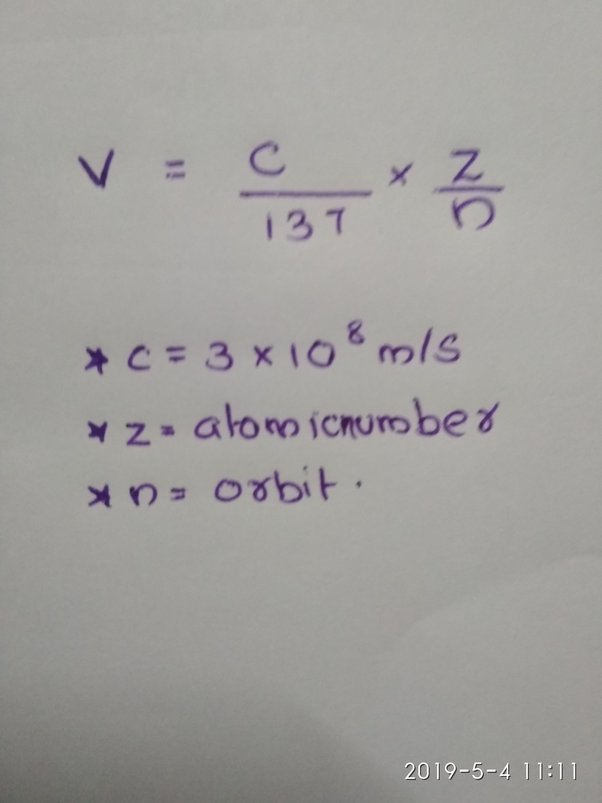 V = C/137 × Z/n
* C = 3 × 10⁸ m/s
* Z = atomicnumber
* n = orbit.
2019-5-4 11:11